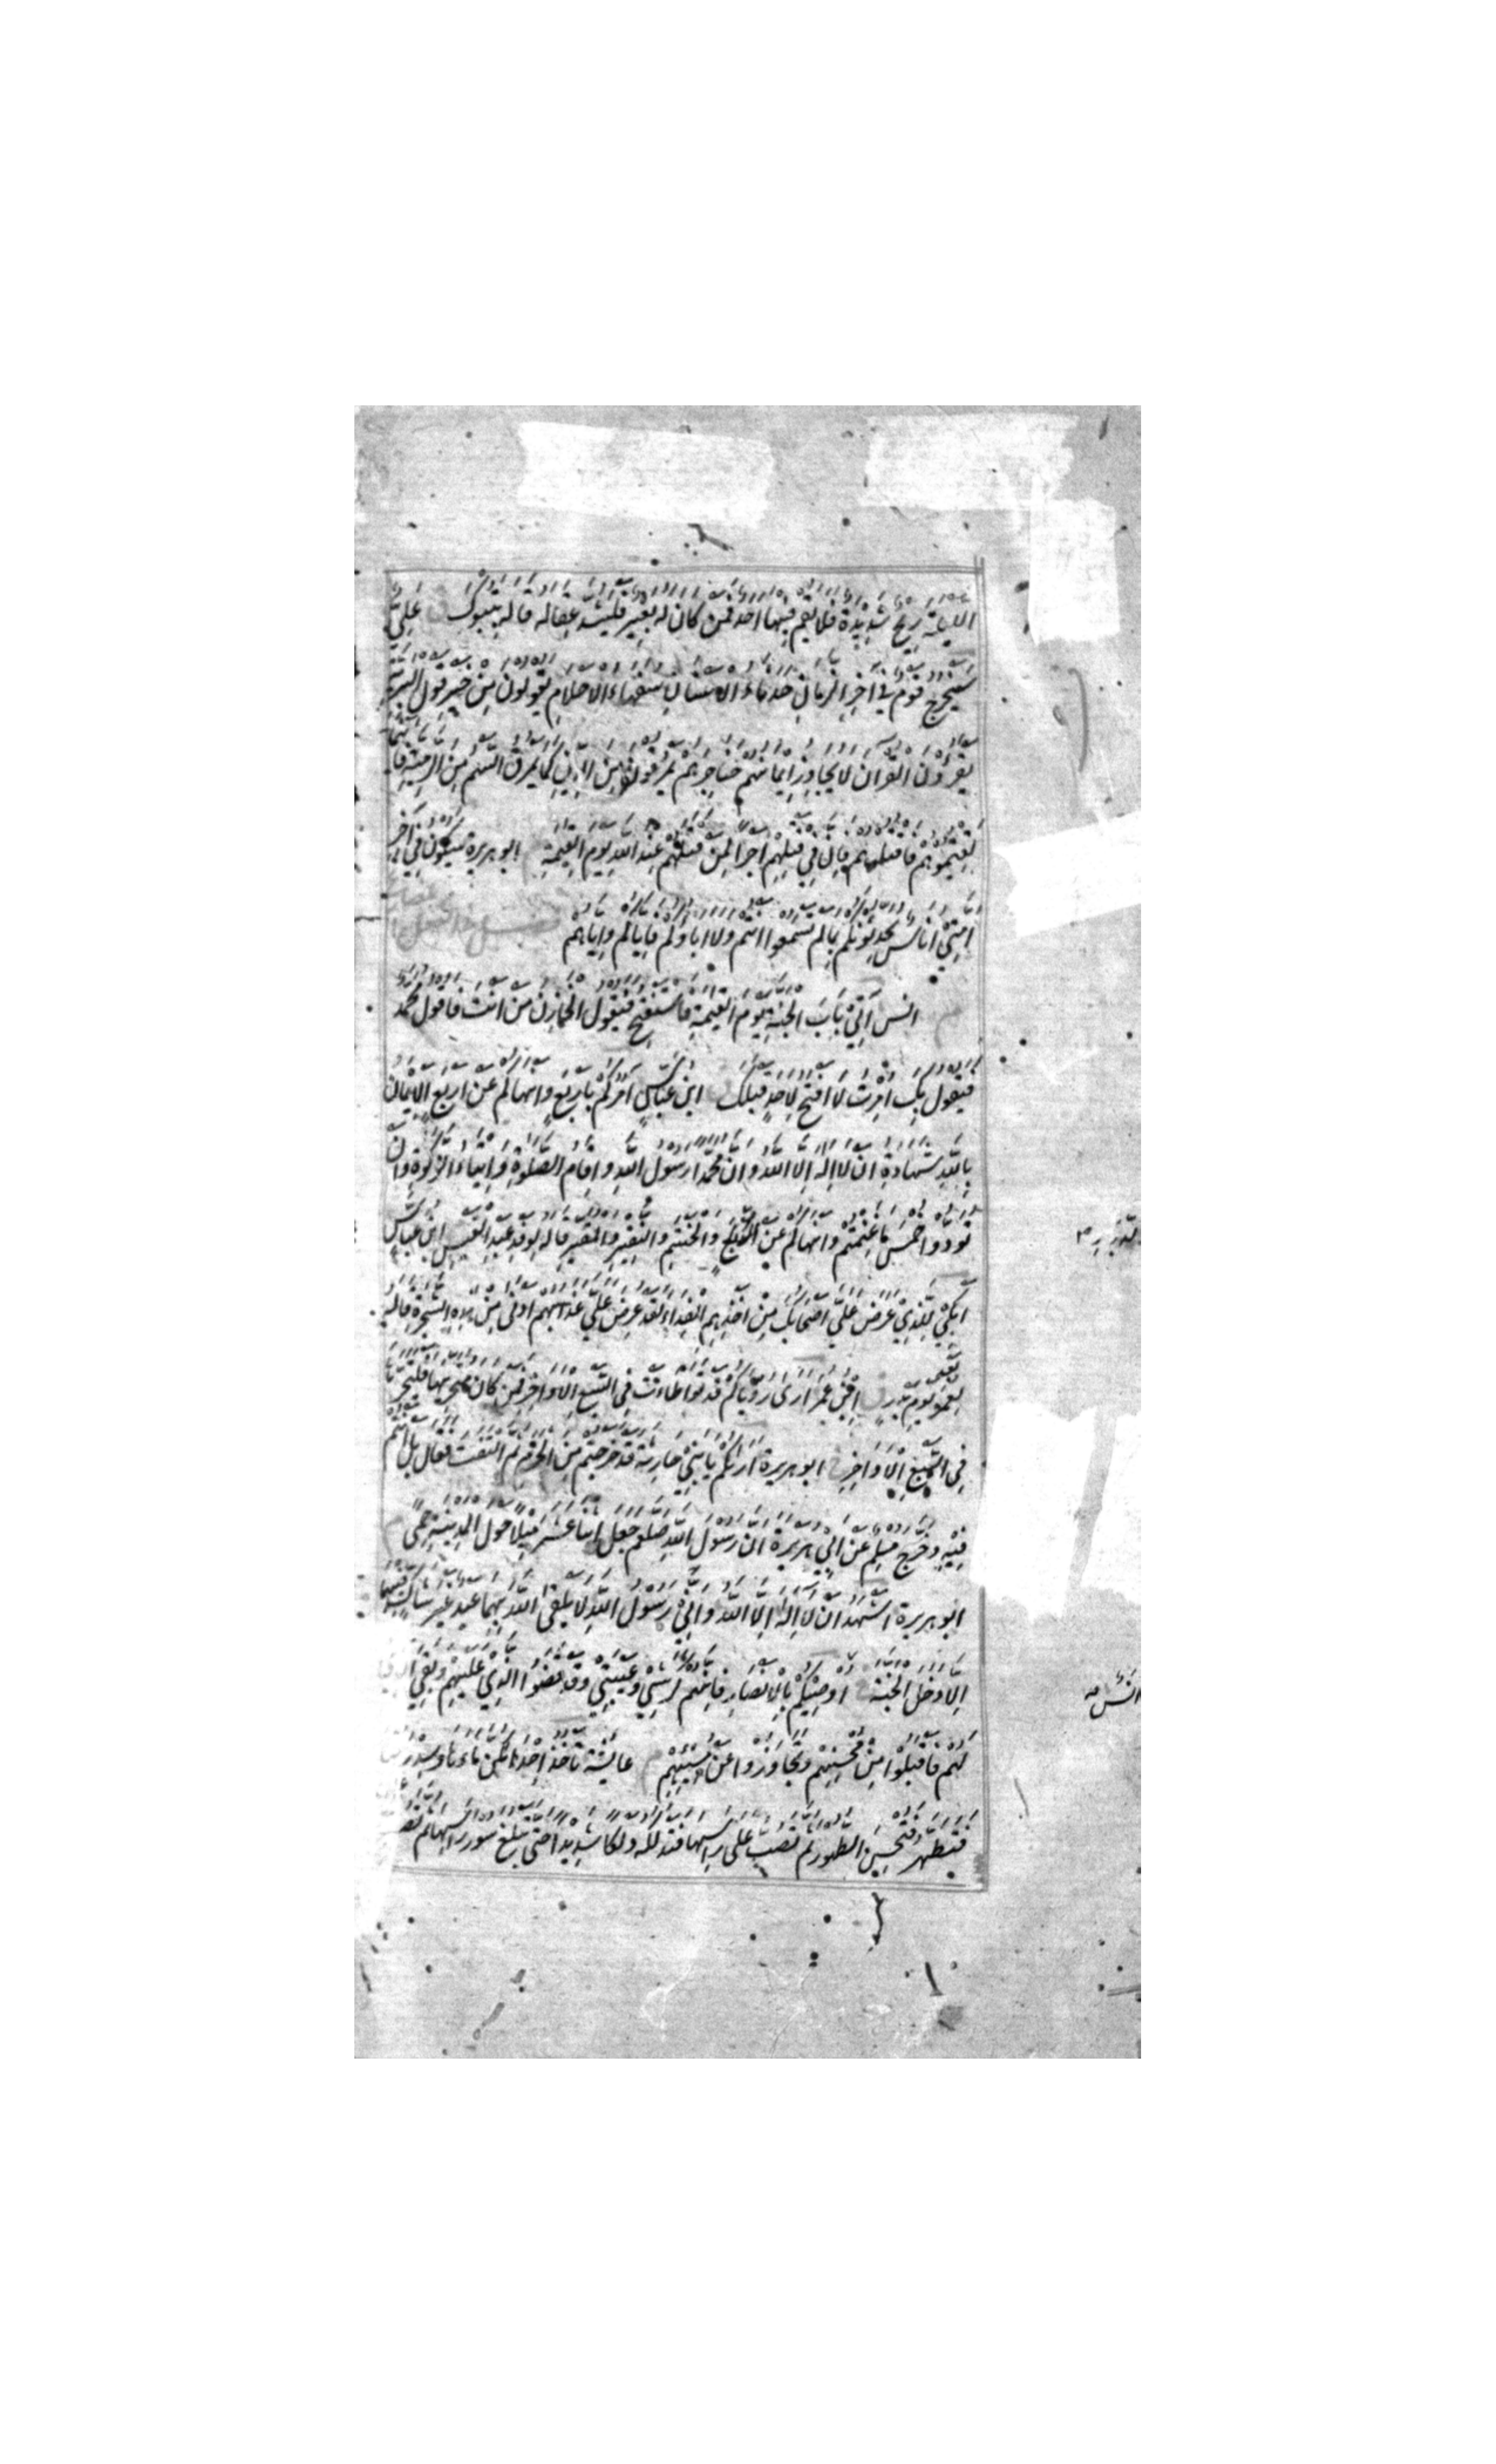 الليلة ريح شديدة فلا يقم فيها احد فمن كان له بعير فليشد عقاله قاله بتبوك ق علي
سيخرج قوم في اخر الزمان حدثاء الاسنان سفهاء الاحلام يقولون من خير قول البرية
يقرؤن القران لا يجاوز ايمانهم حناجرهم يمرقون من الدين كما يمرق السهم من الرمية فاينما
لقيتموهم فاقتلوهم فان في قتلهم اجرا لمن قتلهم عند الله يوم القيمة ابو هريرة سيكون في اخر
امتي اناس يحدثونكم بما لم تسمعوا انتم ولا اباؤكم فاياكم واياهم
م انس آتي باب الجنة يوم القيمة فاستفتح فيقول الخازن من انت فاقول محمد
فيقول بك امرت لا افتح لاحد قبلك ق ابن عباس آمركم باربع وانهاكم عن اربع الايمان
بالله شهادة ان لا اله الا الله وان محمدا رسول الله واقام الصلوة وايتاء الزكوة وان
تؤدوا خمس ما غنمتم وانهاكم عن والحنتم والنقير والمقير قاله لوفد عبد القيس ابن عباس
ابكي للذي عرض علي اصحابك من اخذهم الفداء لقد عرض علي عذابهم ادنى من هذه الشجرة قاله
لعمر يوم بدر ق ابن عمر ارى رؤياكم قد تواطأت في السبع الاواخر فمن كان متحريها فليتحرها
في السبع الاواخر ابو هريرة اراكم يا بني حارثة قد خرجتم من الحرم ثم التفت فقال بل انتم
فيه وخرج مسلم عن ابي هريرة ان رسول الله صلعم جعل اثنا عشر ميلا حول المدينة حمى م
ابو هريرة اشهد ان لا اله الا الله واني رسول الله لا يلقى الله بهما عبد غير شاك فيهما
الا دخل الجنة اوصيكم بالانصار فانهم كرشي وعيبتي وقد قضوا الذي عليهم وبقي الذي
لهم فاقبلوا من محسنهم وتجاوزوا عن مسيئهم م عايشة تاخذ احداكن ماءها وسدرتها
فتطهر فتحسن الطهور ثم تصب على راسها فتدلكه دلكا شديدا حتى يبلغ شؤون راسها ثم تصب
انس